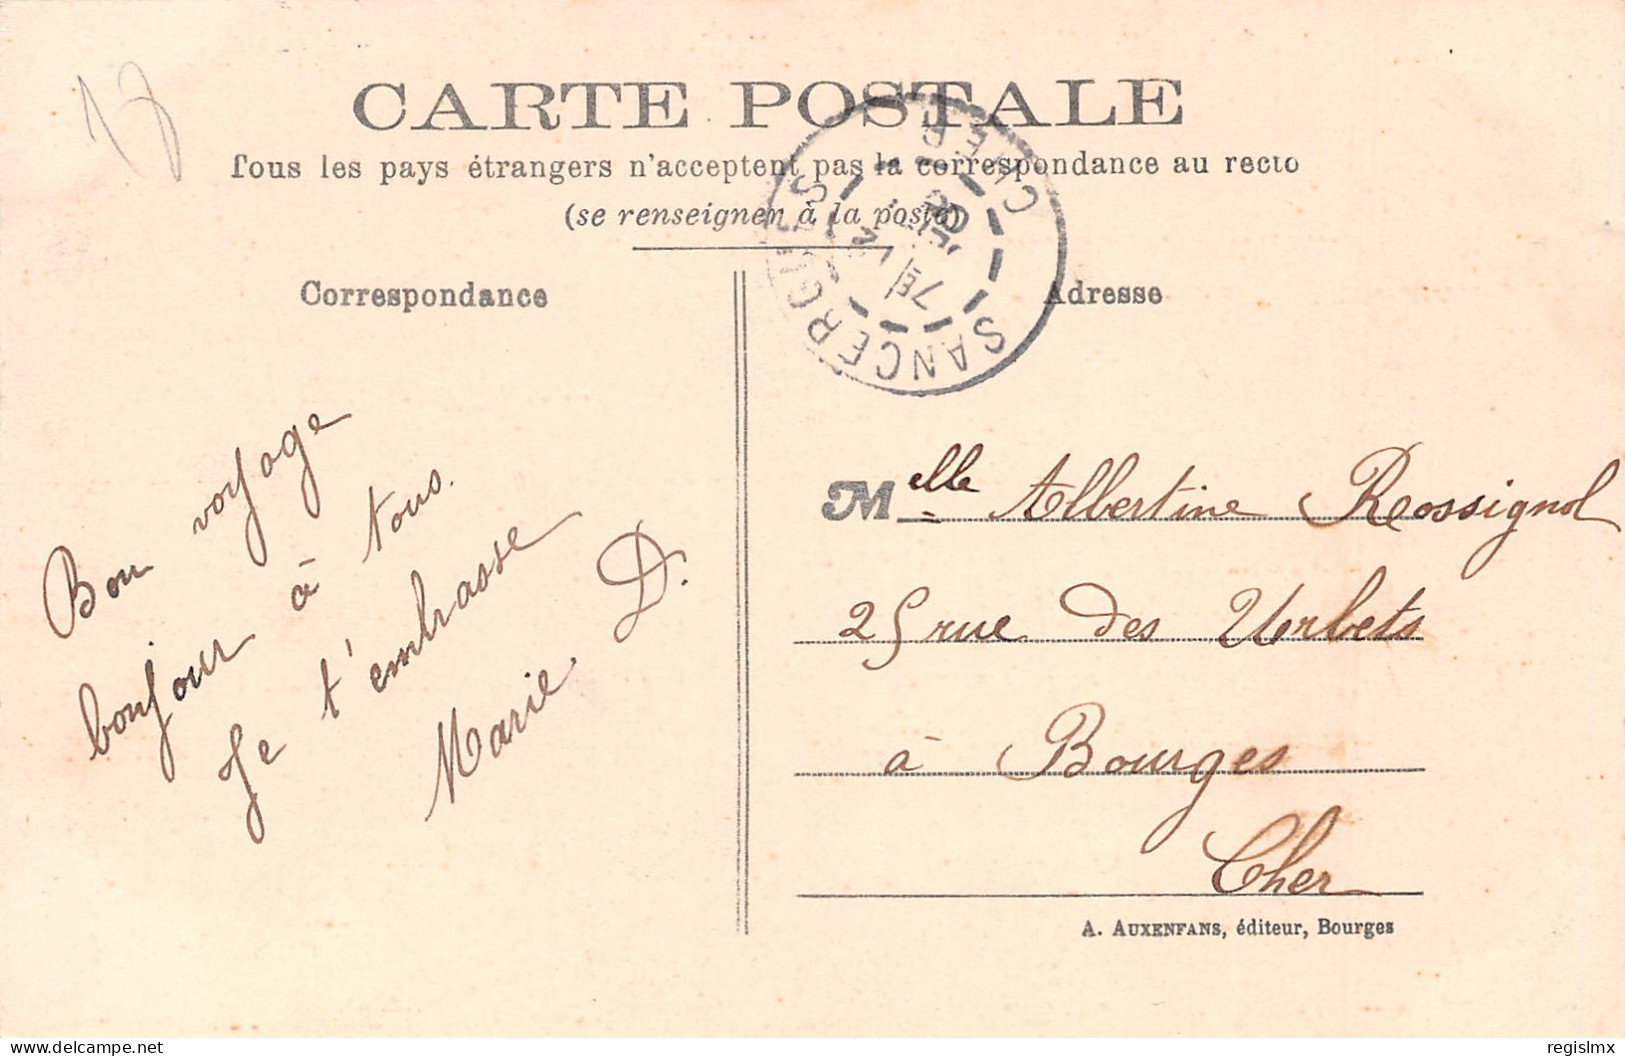 18
CARTE POSTALE
Tous les pays étrangers n'acceptent pas la correspondance au recto
(se renseigner à la poste)
SANCERGUES
CHER
Correspondance
Bon voyage
bonjour à tous.
Je t'embrasse
Marie D.
Adresse
Melle Albertine Rossignol
25 rue des Urbets
à Bourges
Cher
A. AUXENFANS, éditeur, Bourges
delcampe.net
regislmx